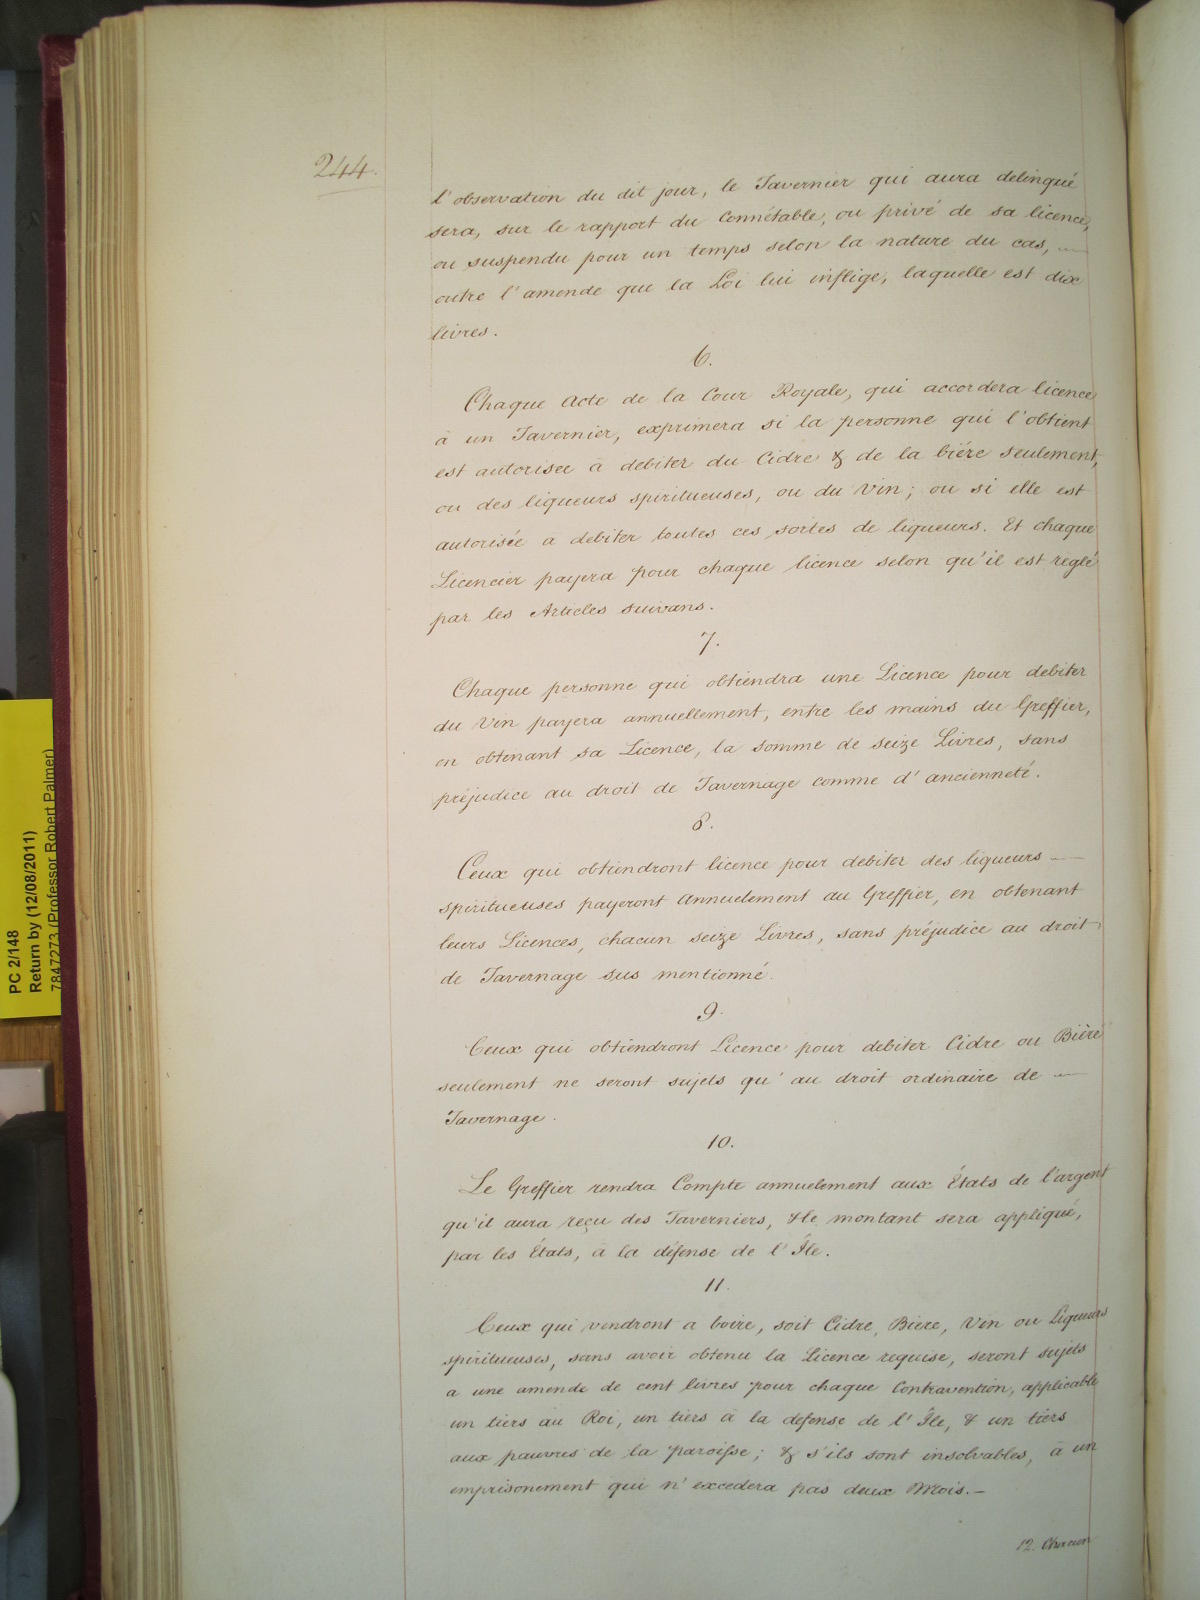 244.
l'observation du dit jour, le Tavernier qui aura delinqué
sera, sur le rapport du Connétable, ou privé de sa licence,
ou suspendu pour un temps selon la nature du cas, —
outre l'amende que la Loi lui inflige, laquelle est dix
livres.
6.
Chaque Acte de la Cour Royale, qui accordera licence
à un Tavernier, exprimera si la personne qui l'obtient
est autorisée à debiter du Cidre & de la biére seulement,
ou des liqueurs spiritueuses, ou du Vin; ou si elle est
autorisée a debiter toutes ces sortes de liqueurs. Et chaque
Licencier payera pour chaque licence selon qu'il est reglé
par les Articles suivans.
7.
Chaque personne qui obtiendra une Licence pour debiter
du Vin payera annuellement, entre les mains du Greffier,
en obtenant sa Licence, la somme de seize Livres, sans
préjudice au droit de Tavernage comme d'ancienneté.
8.
Ceux qui obtiendront licence pour debiter des liqueurs —
spiritueuses payeront Annuelement au Greffier, en obtenant
leurs Licences, chacun seize Livres, sans préjudice au droit
de Tavernage sus mentionné.
9.
Ceux qui obtiendront Licence pour debiter Cidre ou Bière
seulement ne seront sujets qu'au droit ordinaire de —
Tavernage.
10.
Le Greffier rendra Compte annuelement aux États de l'argent
qu'il aura reçu des Taverniers, & le montant sera appliqué,
par les États, à la défense de l'Île.
11.
Ceux qui vendront a boire, soit Cidre, Biere, Vin ou Liqueurs
spiritueuses, sans avoir obtenu la Licence requise, seront sujets
a une amende de cent livres pour chaque Contravention, applicable
un tiers au Roi, un tiers à la defense de l'Île, & un tiers
aux pauvres de la paroisse; & s'ils sont insolvables, à un
emprisonement qui n'excedera pas deux Mois.—
12. Chacun
PC 2/148
Return by (12/08/2011)
7847273 (Professor Robert Palmer)